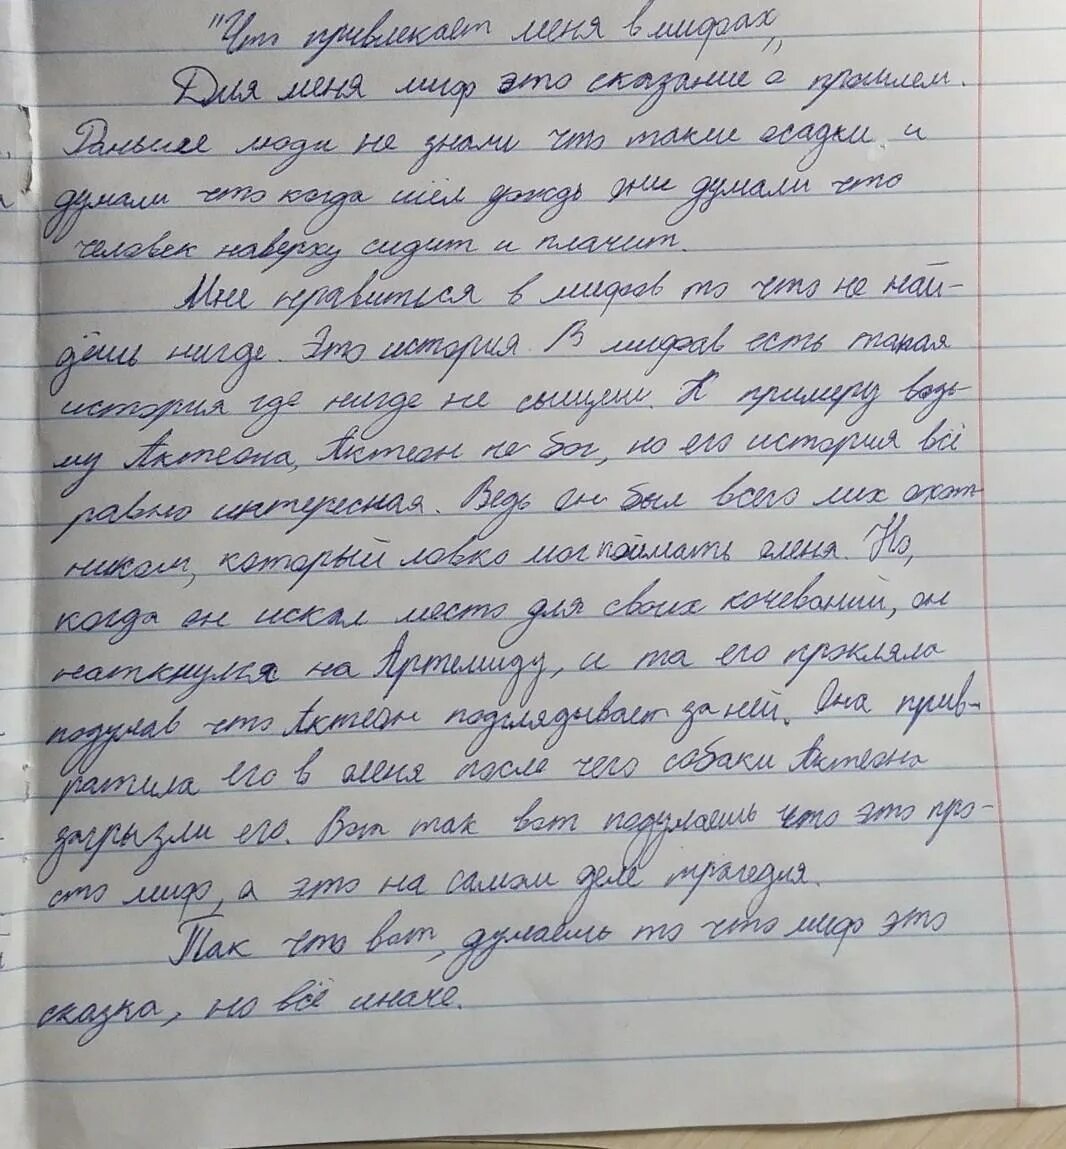 "Что привлекает меня в мифах"
Для меня миф это сказание о прошлом.
Раньше люди не знали что такие осадки и
думали что когда шёл дождь они думали что
человек наверху сидит и плачит.
Мне нравиться в мифов то что не най-
дёшь нигде. Это история. В мифав есть такая
история где нигде не сыщеш. К примеру возь-
му Актеона, Актеон не бог, но его история всё
равно интересная. Ведь он был всего лих охот
ником, который ловко мог поймать оленя. Но,
когда он искал место для своих кочеваний, он
наткнулся на Артемиду, и та его прокляла
подумав что Актеон подглядывает за ней. Она прив-
ратила его в оленя после чего собаки Актеона
загрызли его. Вот так вот подумаешь что это про-
сто миф, а это на самом деле трагедия.
Так что вот, думаешь то что миф это
сказка, но всё иначе.